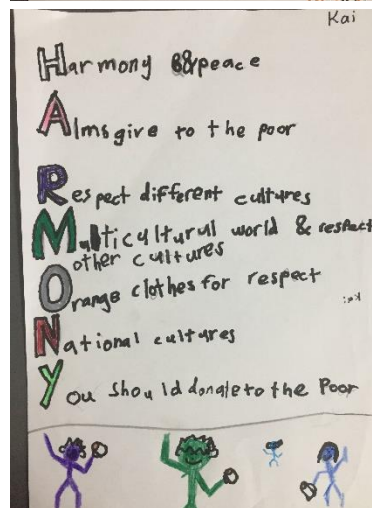 Kai
Harmony & peace
Almsgive to the poor
Respect different cultures
Multicultural world & respect
other cultures
Orange clothes for respect
Kai
National cultures
You should donate to the Poor